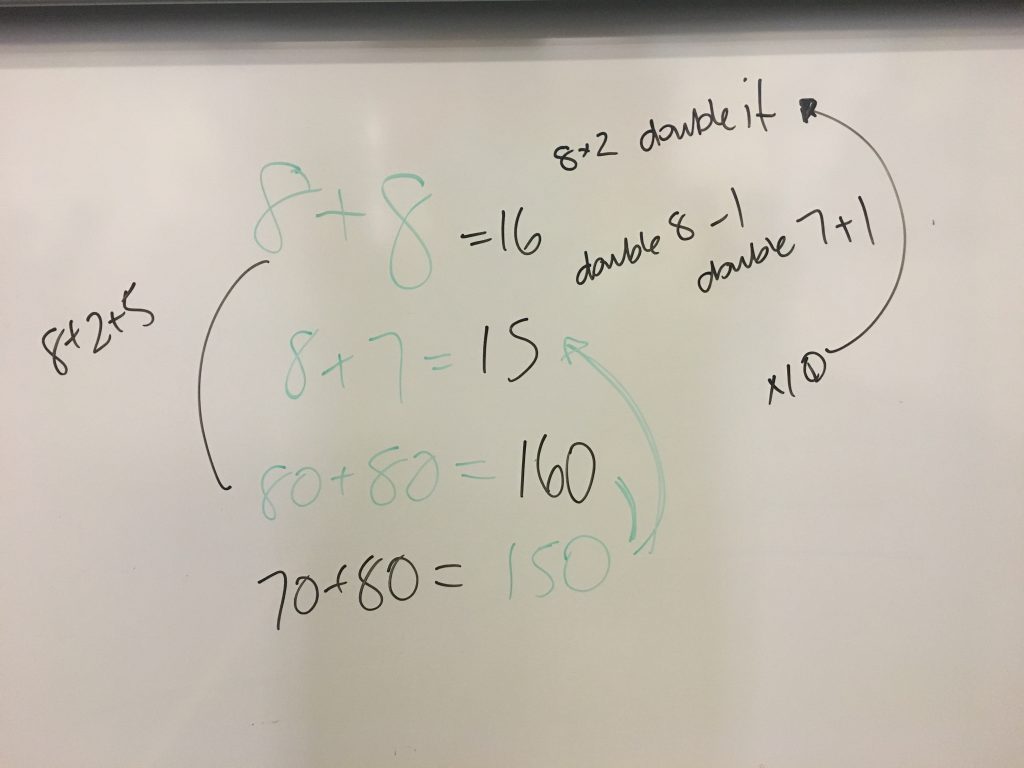 8×2 double it
8+8 =16
double 8 -1
double 7+1
8+2+5
8+7= 15
×10
80+80= 160
70+80= 150